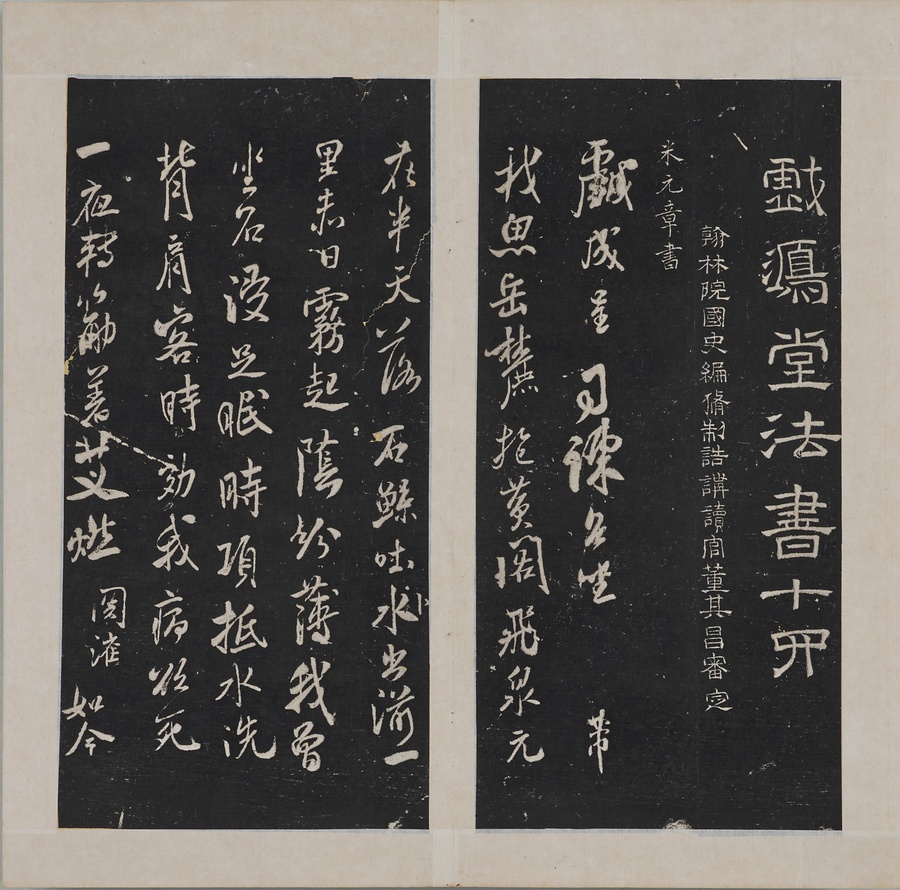 戲鴻堂法書十四
翰林院國史編脩制誥講讀官董其昌審定
米元章書
戲成呈 司諫台坐 芾
我思岳麓抱黃閣飛泉元
在半天落石鯨吐水出湔一
里赤日霧起陰紛薄我曾
坐石浸足眠時項抵水洗
背肩客時効我病欲死
一夜轉筋著艾燃 如今